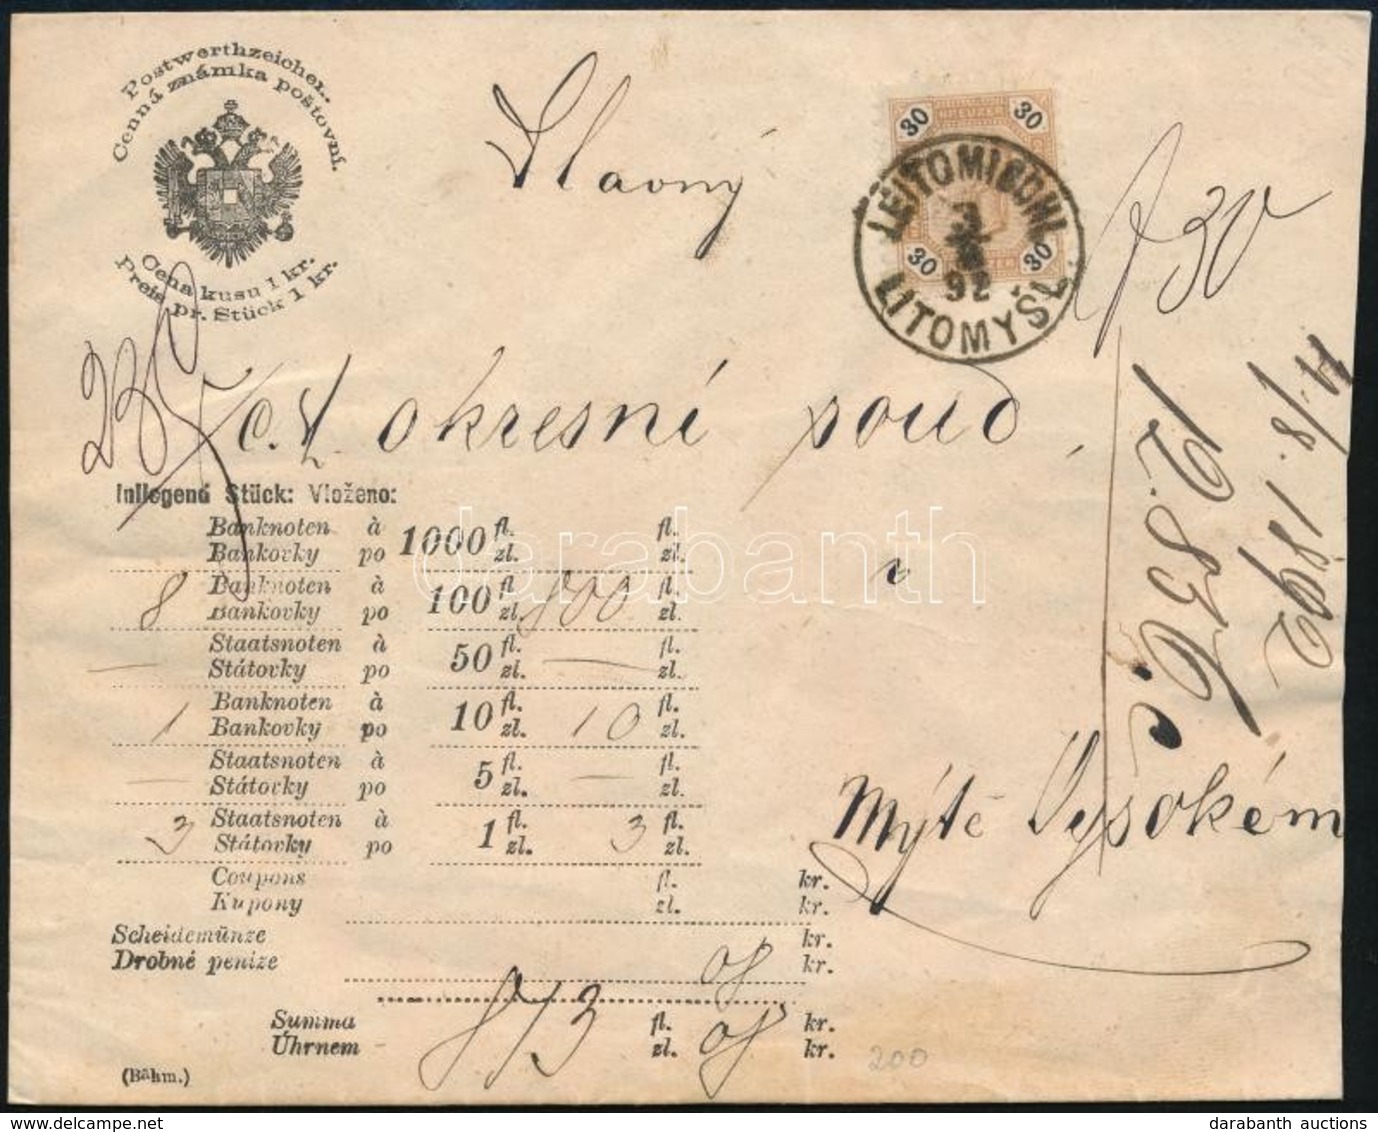 Postwerthzeichen.
Cenná známka poštovní.
Cena kusu 1 kr.
Preis pr. Stück 1 kr.
30 30
LEITOMISCHL
3
92
LITOMYŠL
30 30
Slavný
c. k. okresní soud
v
Mýtě Vysokém
14/8. 1892
Inliegend Stück: Vloženo:
Banknoten à 1000 fl. fl.
Bankovky po zl. zl.
8 Banknoten à 100 fl. 800 fl.
Bankovky po zl. zl.
Staatsnoten à 50 fl. — fl.
Státovky po zl. zl.
1 Banknoten à 10 fl. 10 fl.
Bankovky po zl. zl.
— Staatsnoten à 5 fl. — fl.
Státovky po zl. zl.
3 Staatsnoten à 1 fl. 3 fl.
Státovky po zl. zl.
Coupons fl. kr.
Kupony zl. kr.
Scheidemünze kr.
Drobné peníze kr.
Summa 813 fl. kr.
Úhrnem zl. kr.
(Böhm.)
200
darabanth
darabanth auctions